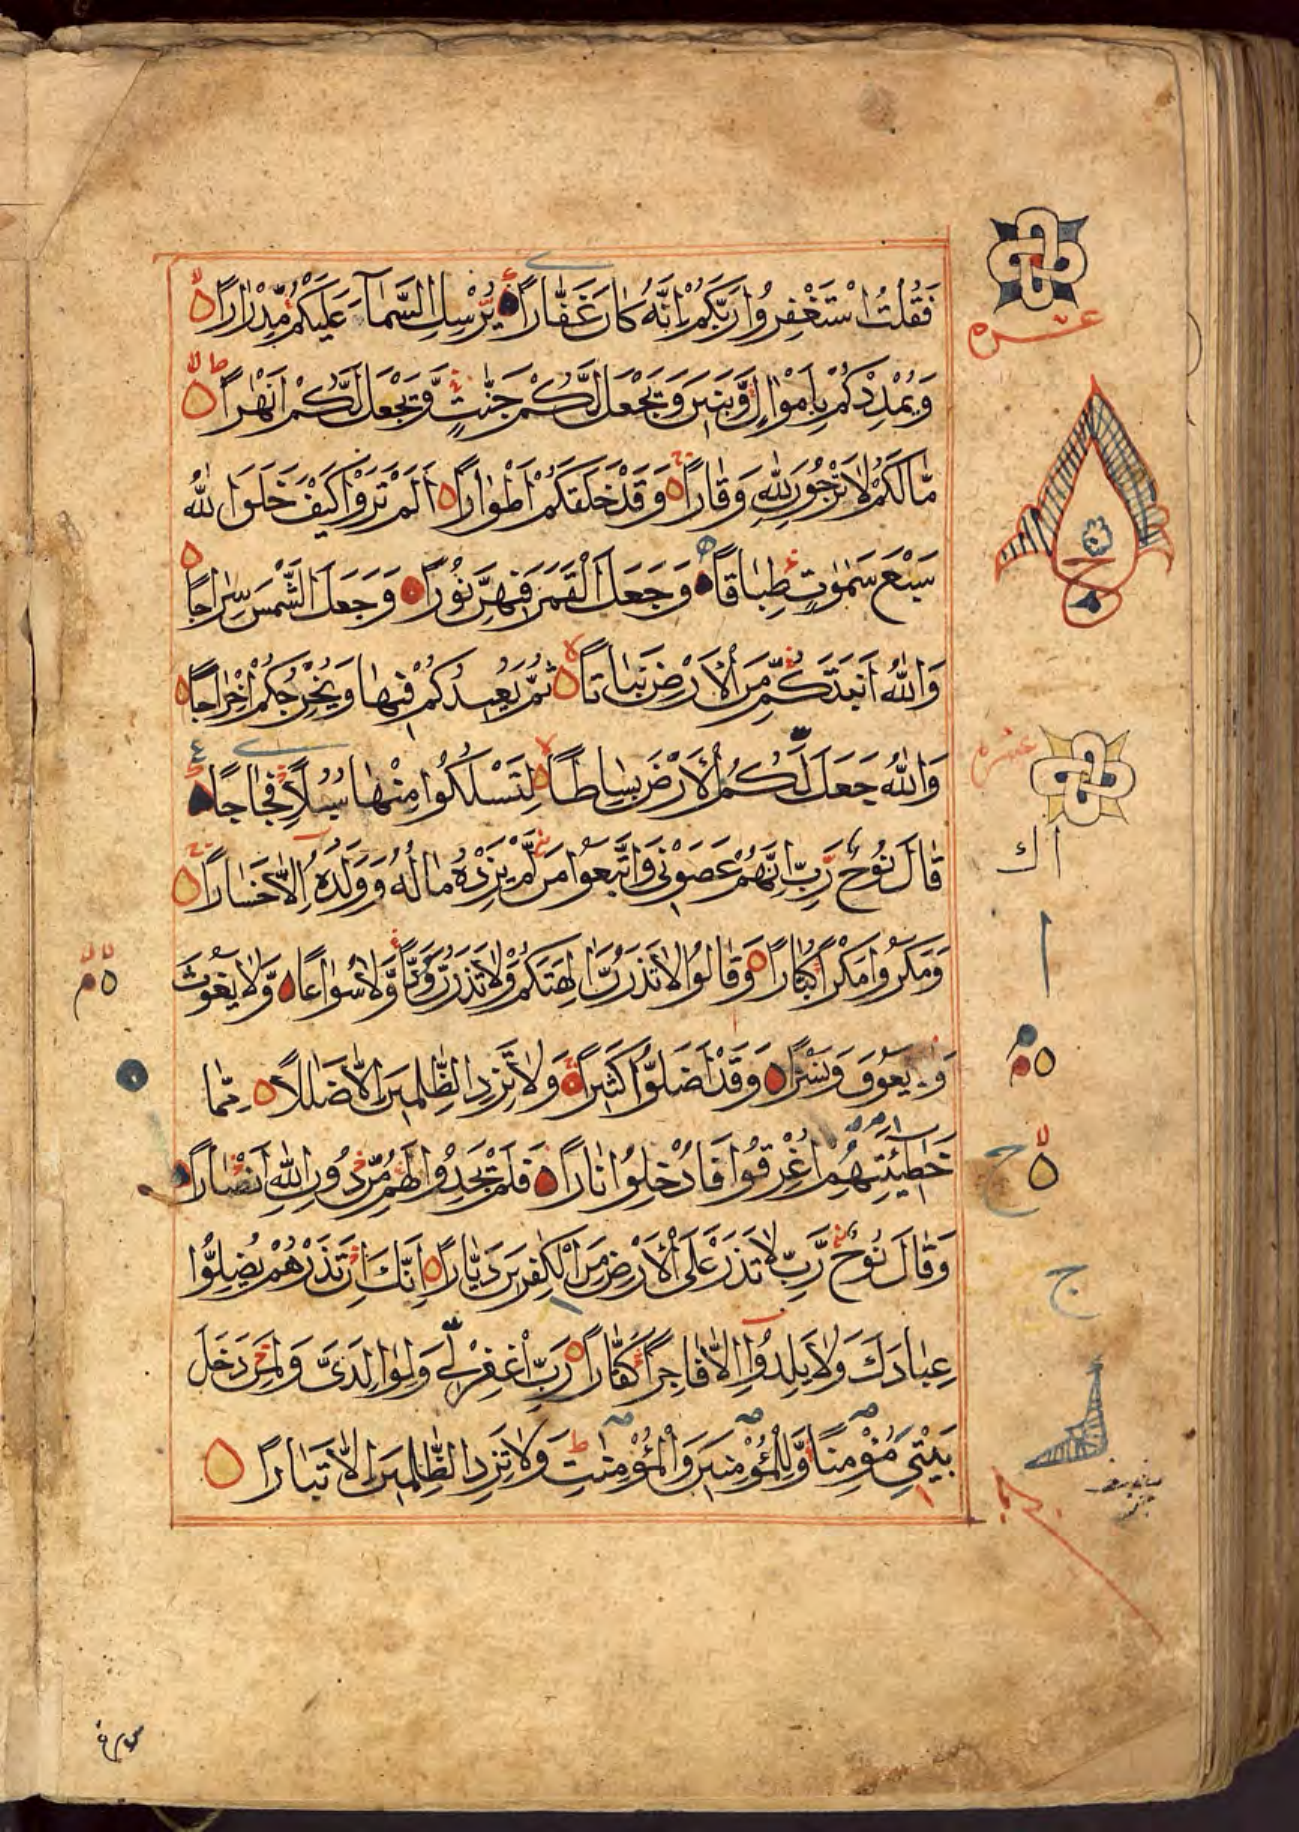 فَقُلْتُ اسْتَغْفِرُوا رَبَّكُمْ إِنَّهُ كَانَ غَفَّارًا يُرْسِلِ السَّمَآءَ عَلَيْكُمْ مِّدْرَارًا
عشره
وَيُمْدِدْكُمْ بِاَمْوَالٍ وَّبَنِينَ وَيَجْعَلْ لَّكُمْ جَنّٰتٍ وَّيَجْعَلْ لَّكُمْ اَنْهٰرًا
مَّا لَكُمْ لَا تَرْجُونَ لِلّٰهِ وَقَارًا وَقَدْ خَلَقَكُمْ اَطْوَارًا اَلَمْ تَرَوْا كَيْفَ خَلَقَ اللّٰهُ
سَبْعَ سَمٰوٰتٍ طِبَاقًا وَجَعَلَ الْقَمَرَ فِيهِنَّ نُورًا وَجَعَلَ الشَّمْسَ سِرَاجًا
وَاللّٰهُ اَنْبَتَكُمْ مِّنَ الْاَرْضِ نَبَاتًا ثُمَّ يُعِيدُكُمْ فِيهَا وَيُخْرِجُكُمْ اِخْرَاجًا
عشره
وَاللّٰهُ جَعَلَ لَكُمُ الْاَرْضَ بِسَاطًا لِّتَسْلُكُوا مِنْهَا سُبُلًا فِجَاجًا
قَالَ نُوحٌ رَّبِّ اِنَّهُمْ عَصَوْنِى وَاتَّبَعُوا مَنْ لَّمْ يَزِدْهُ مَالُهُ وَوَلَدُهُ اِلَّا خَسَارًا
وَمَكَرُوا مَكْرًا كُبَّارًا وَقَالُوا لَا تَذَرُنَّ اٰلِهَتَكُمْ وَلَا تَذَرُنَّ وَدًّا وَّلَا سُوَاعًا وَّلَا يَغُوثَ
وَيَعُوقَ وَنَسْرًا وَقَدْ اَضَلُّوا كَثِيرًا وَلَا تَزِدِ الظّٰلِمِينَ اِلَّا ضَلٰلًا مِّمَّا
خَطِيْئٰتِهِمْ اُغْرِقُوا فَاُدْخِلُوا نَارًا فَلَمْ يَجِدُوا لَهُمْ مِّنْ دُونِ اللّٰهِ اَنْصَارًا
وَقَالَ نُوحٌ رَّبِّ لَا تَذَرْ عَلَى الْاَرْضِ مِنَ الْكٰفِرِينَ دَيَّارًا اِنَّكَ اِنْ تَذَرْهُمْ يُضِلُّوا
عِبَادَكَ وَلَا يَلِدُوا اِلَّا فَاجِرًا كَفَّارًا رَبِّ اغْفِرْ لِى وَلِوَالِدَىَّ وَلِمَنْ دَخَلَ
بَيْتِىَ مُؤْمِنًا وَّلِلْمُؤْمِنِينَ وَالْمُؤْمِنٰتِ وَلَا تَزِدِ الظّٰلِمِينَ اِلَّا تَبَارًا